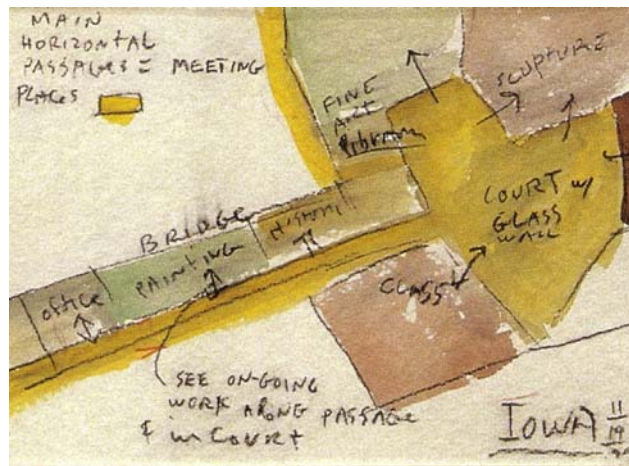 MAIN
HORIZONTAL
PASSAGES = MEETING
PLACES
FINE
ART
library
SCUPTURE
COURT w/
GLASS
WALL
BRIDGE
HISTORY
PAINTING
OFFICE
CLASS
SEE ON-GOING
WORK ALONG PASSAGE
& in COURT
IOWA 11
19